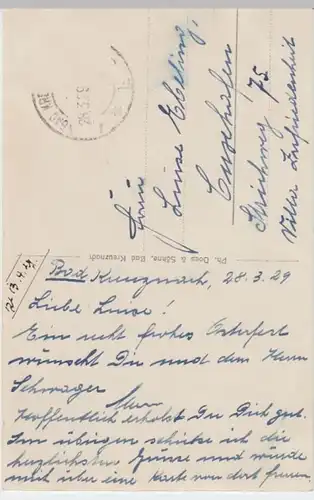 BAD KRE
28.3.29
Frau
Luise Ebeling
Cuxhafen
Strichweg 75
Villa Zufriedenheit
Ph. Doos & Söhne, Bad Kreuznach
13.4.29
Bad Kreuznach, 28.3.29
Liebe Luise!
Ein recht frohes Osterfest
wünscht Dir und dem Herrn
Schwager
Hoffentlich erholst Du Dich gut.
Im übrigen schicke ich die
herzlichsten Grüsse und würde
mich über eine Karte von dort freuen.